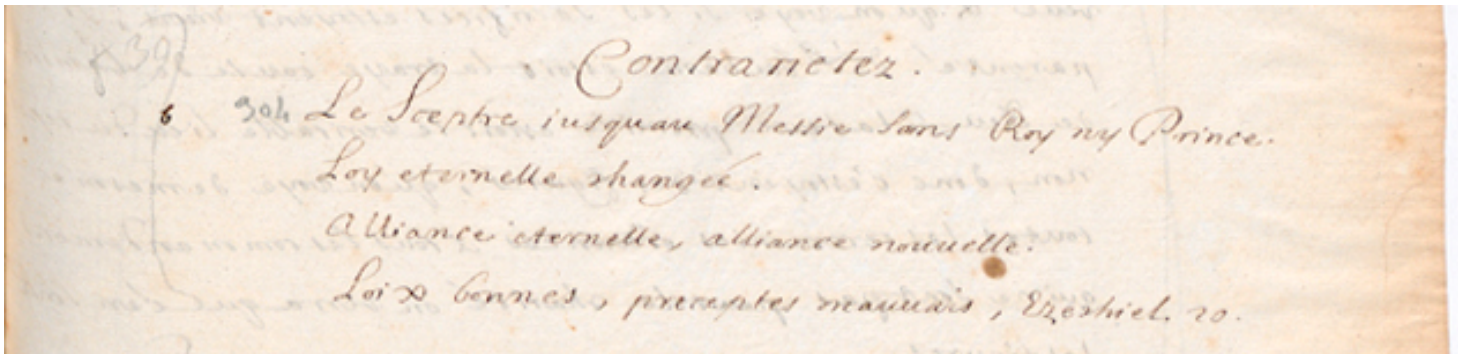 Contrarietez.
6 304 Le Sceptre iusquau Messie sans Roy ny Prince.
Loy eternelle changeé.
Alliance eternelle, alliance nouuelle.
Loix bonnes, preceptes mauuais, Ezechiel. 20.